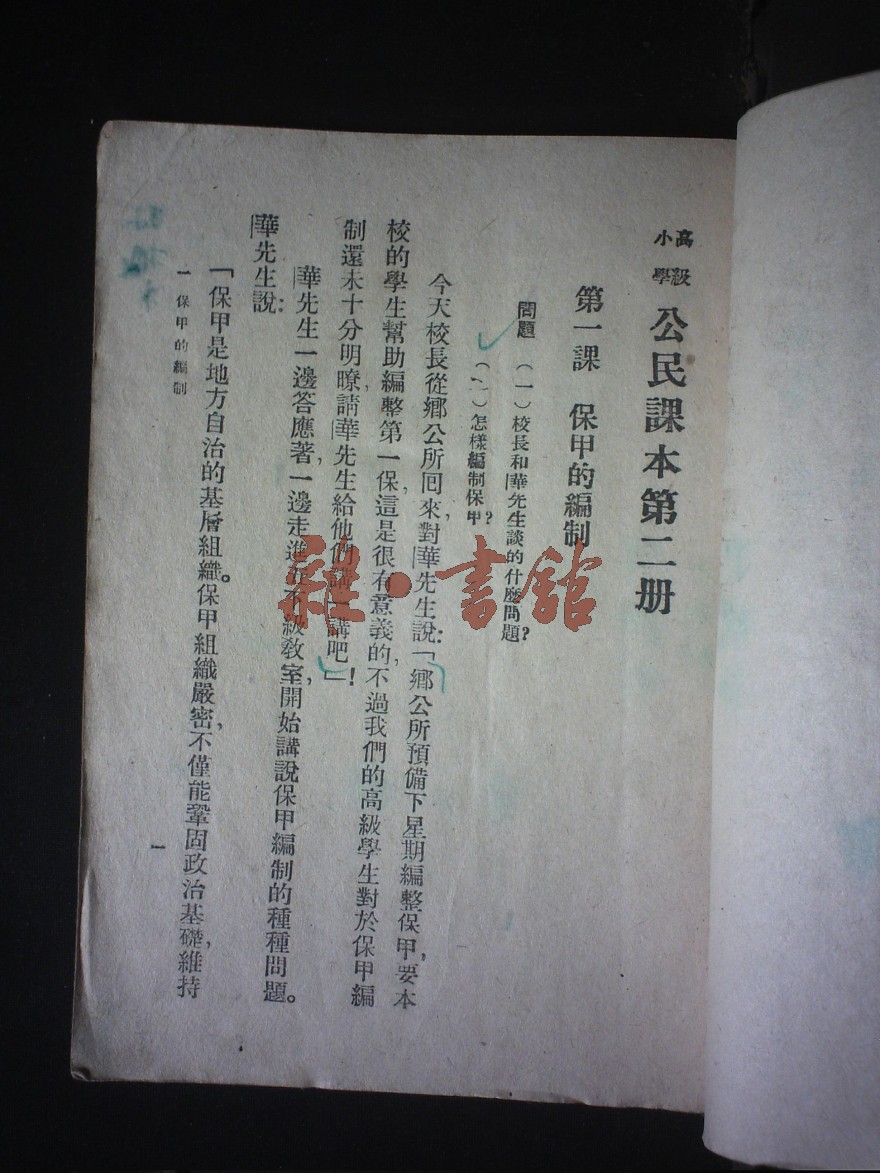 高級
小學
公民課本第二册
第一課　保甲的編制
問題　(一)校長和華先生談的什麽問題?
(二)怎樣編制保甲?
今天校長從鄉公所回來,對華先生說:「鄉公所預備下星期編整保甲,要本
校的學生幫助編整第一保,這是很有意義的,不過我們的高級學生對於保甲編
制還未十分明瞭,請華先生給他們講一講吧」!
華先生一邊答應著,一邊走進五六級敎室,開始講說保甲編制的種種問題。
華先生說:
「保甲是地方自治的基層組織。保甲組織嚴密,不僅能鞏固政治基礎,維持
一 保甲的編制
一
雜·書館